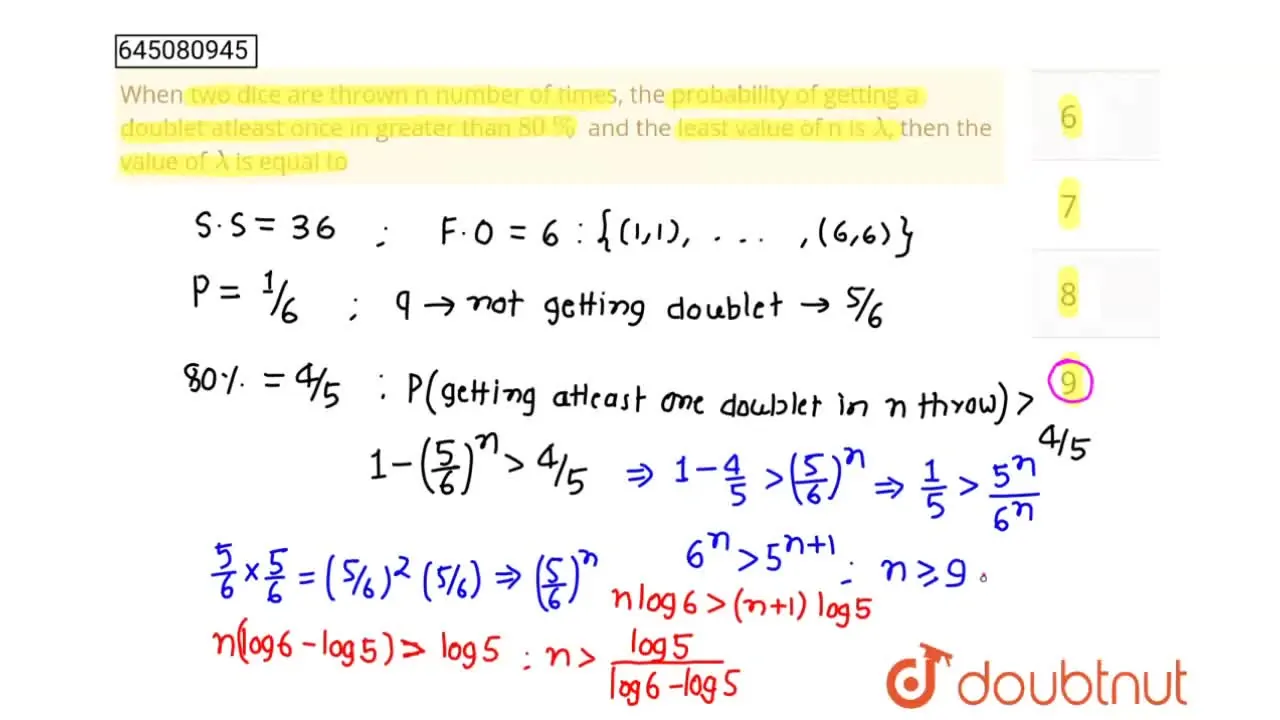 645080945
When two dice are thrown n number of times, the probability of getting a
doublet atleast once in greater than 80 % and the least value of n is λ, then the
value of λ is equal to
6
7
8
9
S.S = 36 ; F.O = 6 : {(1,1), .... ,(6,6)}
P = 1/6 ; q → not getting doublet → 5/6
80% = 4/5 : P(getting atleast one doublet in n throw) >
4/5
1-(5/6)^n > 4/5 ⇒ 1 - 4/5 > (5/6)^n ⇒ 1/5 > 5^n/6^n
5/6 × 5/6 = (5/6)^2 (5/6) ⇒ (5/6)^n
6^n > 5^{n+1} : n ≥ 9.
n log 6 > (n+1) log 5
n(log 6 - log 5) > log 5 : n > log 5/(log 6 - log 5)
doubtnut